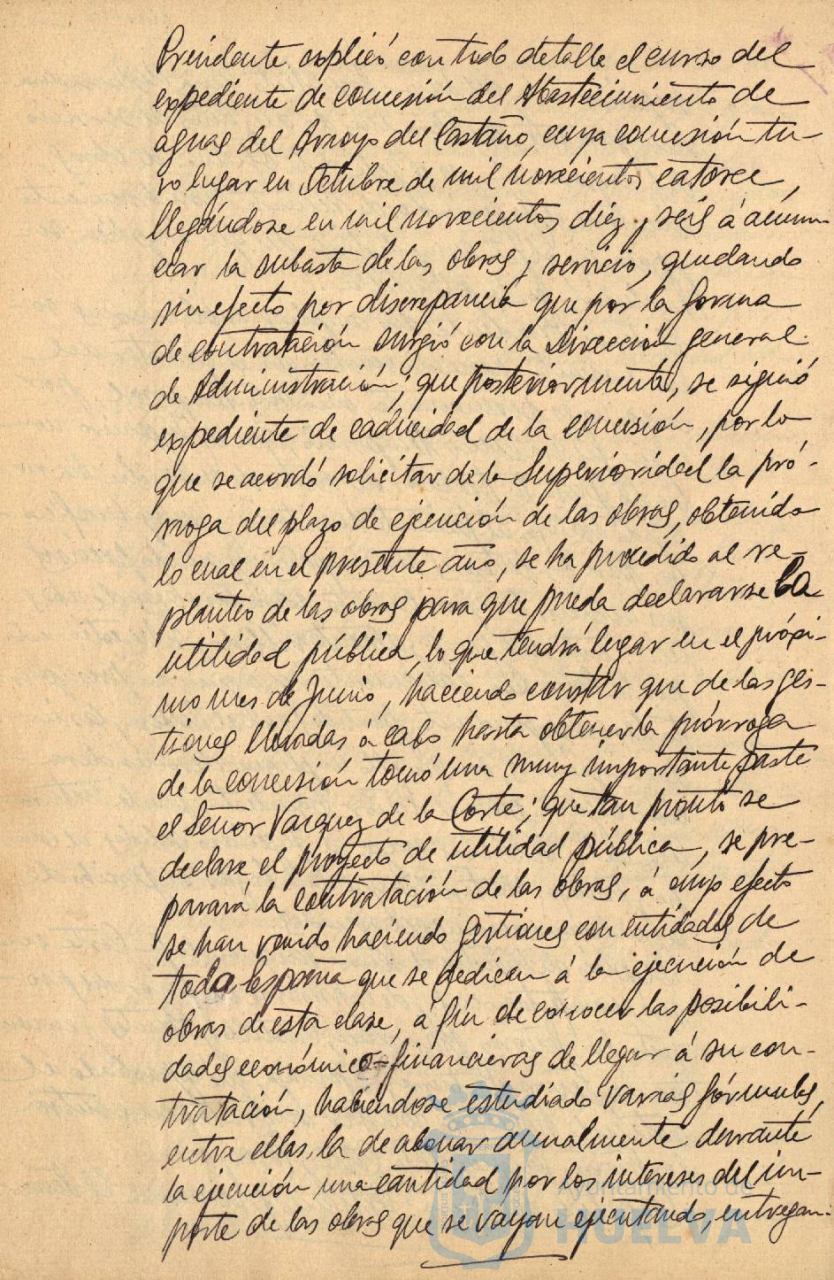 Presidente explicó con todo detalle el curso del
expediente de concesión del Abastecimiento de
aguas del Arroyo del Castaño, cuya concesión tu-
vo lugar en Octubre de mil novecientos catorce,
llegándose en mil novecientos diez y seis á anun-
ciar la subasta de las obras y servicio, quedando
sin efecto por discrepancia que por la forma
de contratación surgió con la Dirección general
de Administración; que posteriormente, se siguió
expediente de caducidad de la concesión, por lo
que se acordó solicitar de la Superioridad la pró-
rroga del plazo de ejecución de las obras, obtenido
lo cual en el presente año, se ha procedido al re-
planteo de las obras para que pueda declararse la
utilidad pública, lo que tendrá lugar en el próxi-
mo mes de Junio, haciendo constar que de las ges-
tiones llevadas á cabo hasta obtener la prórroga
de la concesión tomó una muy importante parte
el Señor Vazquez de la Corte; que tan pronto se
declare el proyecto de utilidad pública, se pre-
parará la contratación de las obras, á cuyo efecto
se han venido haciendo gestiones con entidades de
toda España que se dedican á la ejecución de
obras de esta clase, a fin de conocer las posibili-
dades económico-financieras de llegar á su con-
tratación, habiéndose estudiado varias fórmulas,
entre ellas, la de abonar anualmente durante
la ejecución una cantidad por los intereses del im-
porte de las obras que se vayan ejecutando, entregan-
AYUNTAMIENTO DE
HUELVA